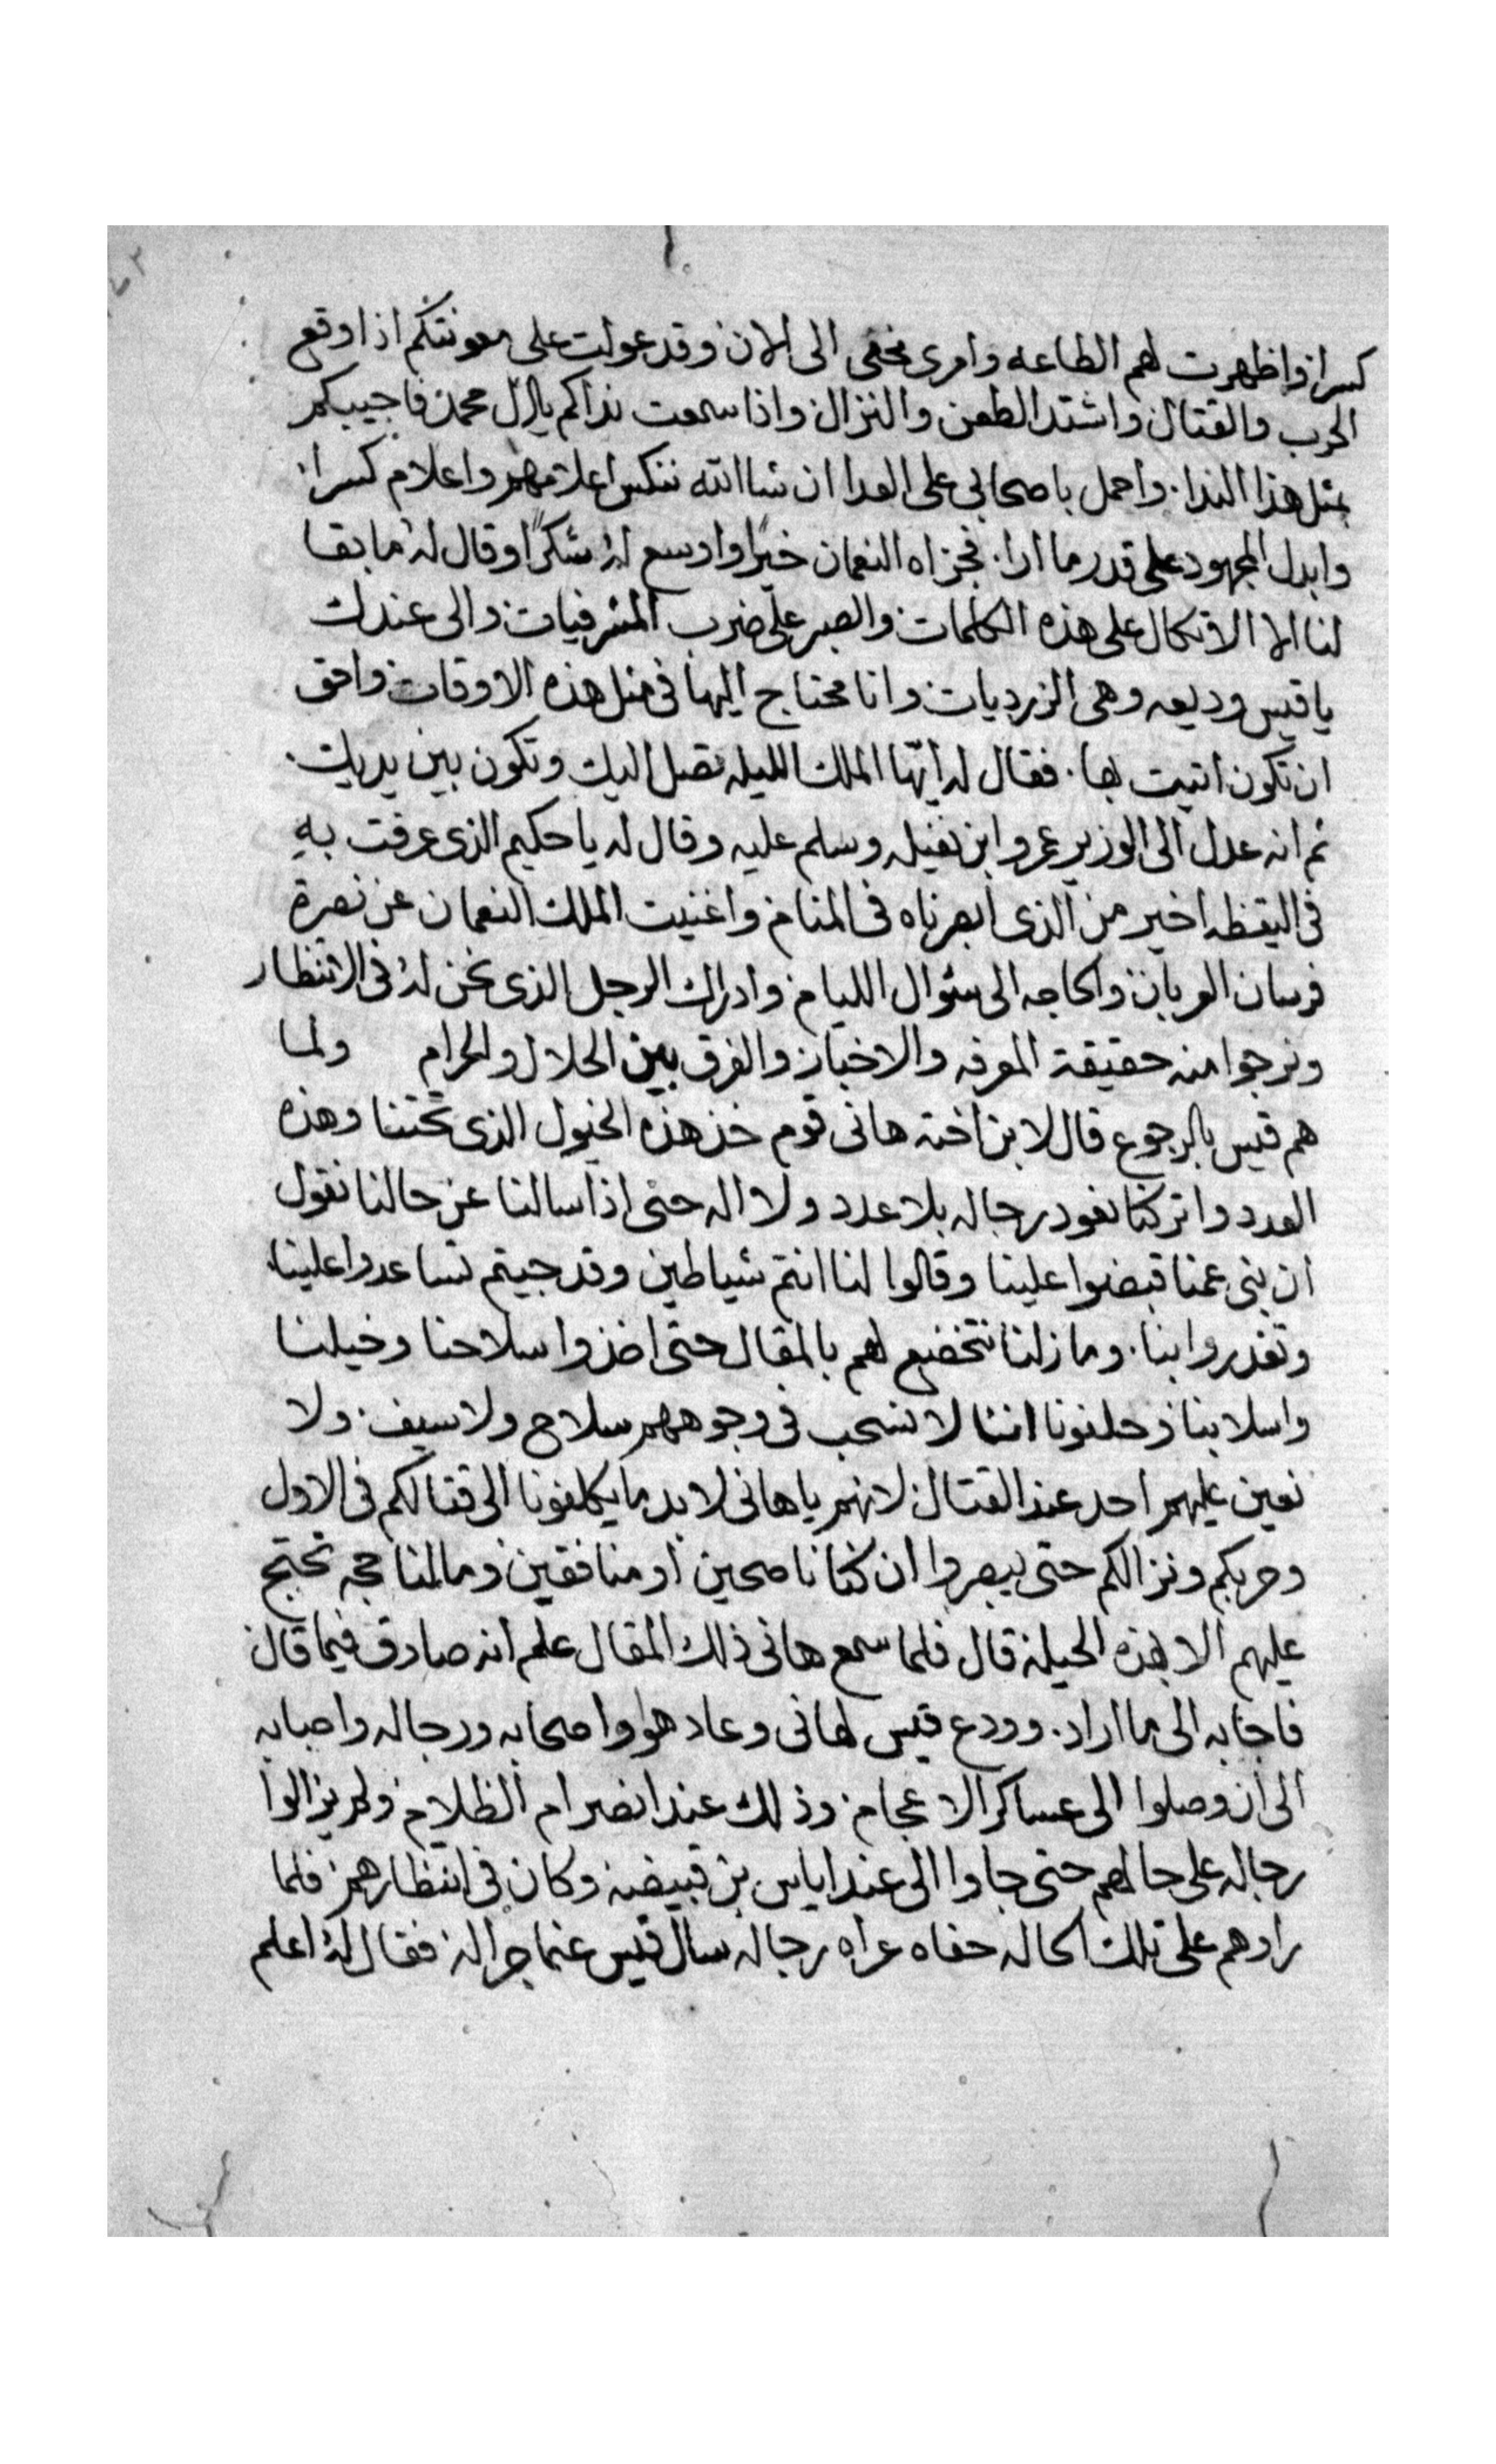 كسرا واظهرت لهم الطاعه وامرى مخفى الى الان وقد عولت على معونتكم اذا وقع
الحرب والقتال واشتد الطعن والنزال واذا سمعت نداكم يال محمد فاجيبكم
بمثل هذا الندا. واحمل باصحابى على العدا ان شاالله ننكس اعلامهم واعلام كسرا.
وابدل المجهود على قدر ما ارا. فجزاه النعمان خيرًا واوسع له شكرًا وقال له ما بقا
لنا الا الاتكال على هذه الكلمات والصبر على ضرب المشرفيات والى عندك
يا قيس وديعه وهى الزرديات وانا محتاج اليها فى مثل هذه الاوقات وافق
ان تكون اتيت بها. فقال له ايها الملك الليله تصل اليك وتكون بين يديك.
ثم انه عدل الى الوزير عمرو ابن نفيله وسلم عليه وقال له يا حكيم الذى عرفت به
فى اليقظه اخير من الذى ابصرناه فى المنام واغنيت الملك النعمان عن نصرة
فرسان العربان والحاجه الى سئوال الليام وادراك الرجل الذى نحن له فى الانتظار
ونرجوا منه حقيقة المعرفه والاخبار والفرق بين الحلال والحرام ولما
هم قيس بالرجوع قال لابن اخته هانى قوم خذ هذه الخيول الذى تحتنا وهذه
العدد واتركنا نعود رجاله بلا عدد ولا اله حتى اذا سالنا عن حالنا نقول
ان بنى عمنا قبضوا علينا وقالوا لنا انتم شياطين وقد جيتم تساعدوا علينا.
وتغدروا بنا. وما زلنا نتخضع لهم بالمقال حتى اخذوا سلاحنا وخيلنا
واسلابنا وحلفونا اننا لا نسحب فى وجوههم سلاح ولا سيف. ولا
نعين عليهم احد عند القتال لانهم يا هانى لا بد ما يكلفونا الى قتالكم فى الاول
وحربكم ونزالكم حتى يبصروا ان كنا ناصحين او منافقين وما لنا حجه نحتج
عليهم الا بهذه الحيله قال فلما سمع هانى ذلك المقال علم انه صادق فيما قال
فاجابه الى ما اراد. وودع قيس لهانى وعاد هوا واصحابه ورجاله واحبابه
الى ان وصلوا الى عساكر الاعجام. وذلك عند انصرام الظلام ولم يزالوا
رجاله على حالهم حتى جاوا الى عند اياس بن قبيضه وكان فى انتظارهم فلما
راوهم على تلك الحاله حفاه عراه رجاله سال قيس عنما جرا له. فقال له اعلم